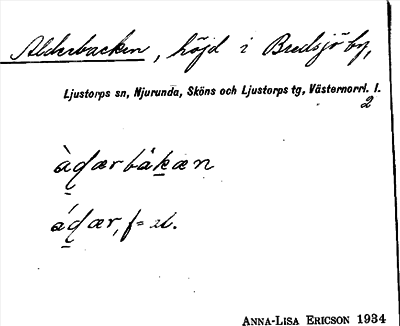 Alderbacken, höjd i Bredsjö by,
Ljustorps sn, Njurunda, Sköns och Ljustorps tg, Västernorrl. l.
2
àɖærbákæn
áɖær, f=al.
ANNA-LISA ERICSON 1934